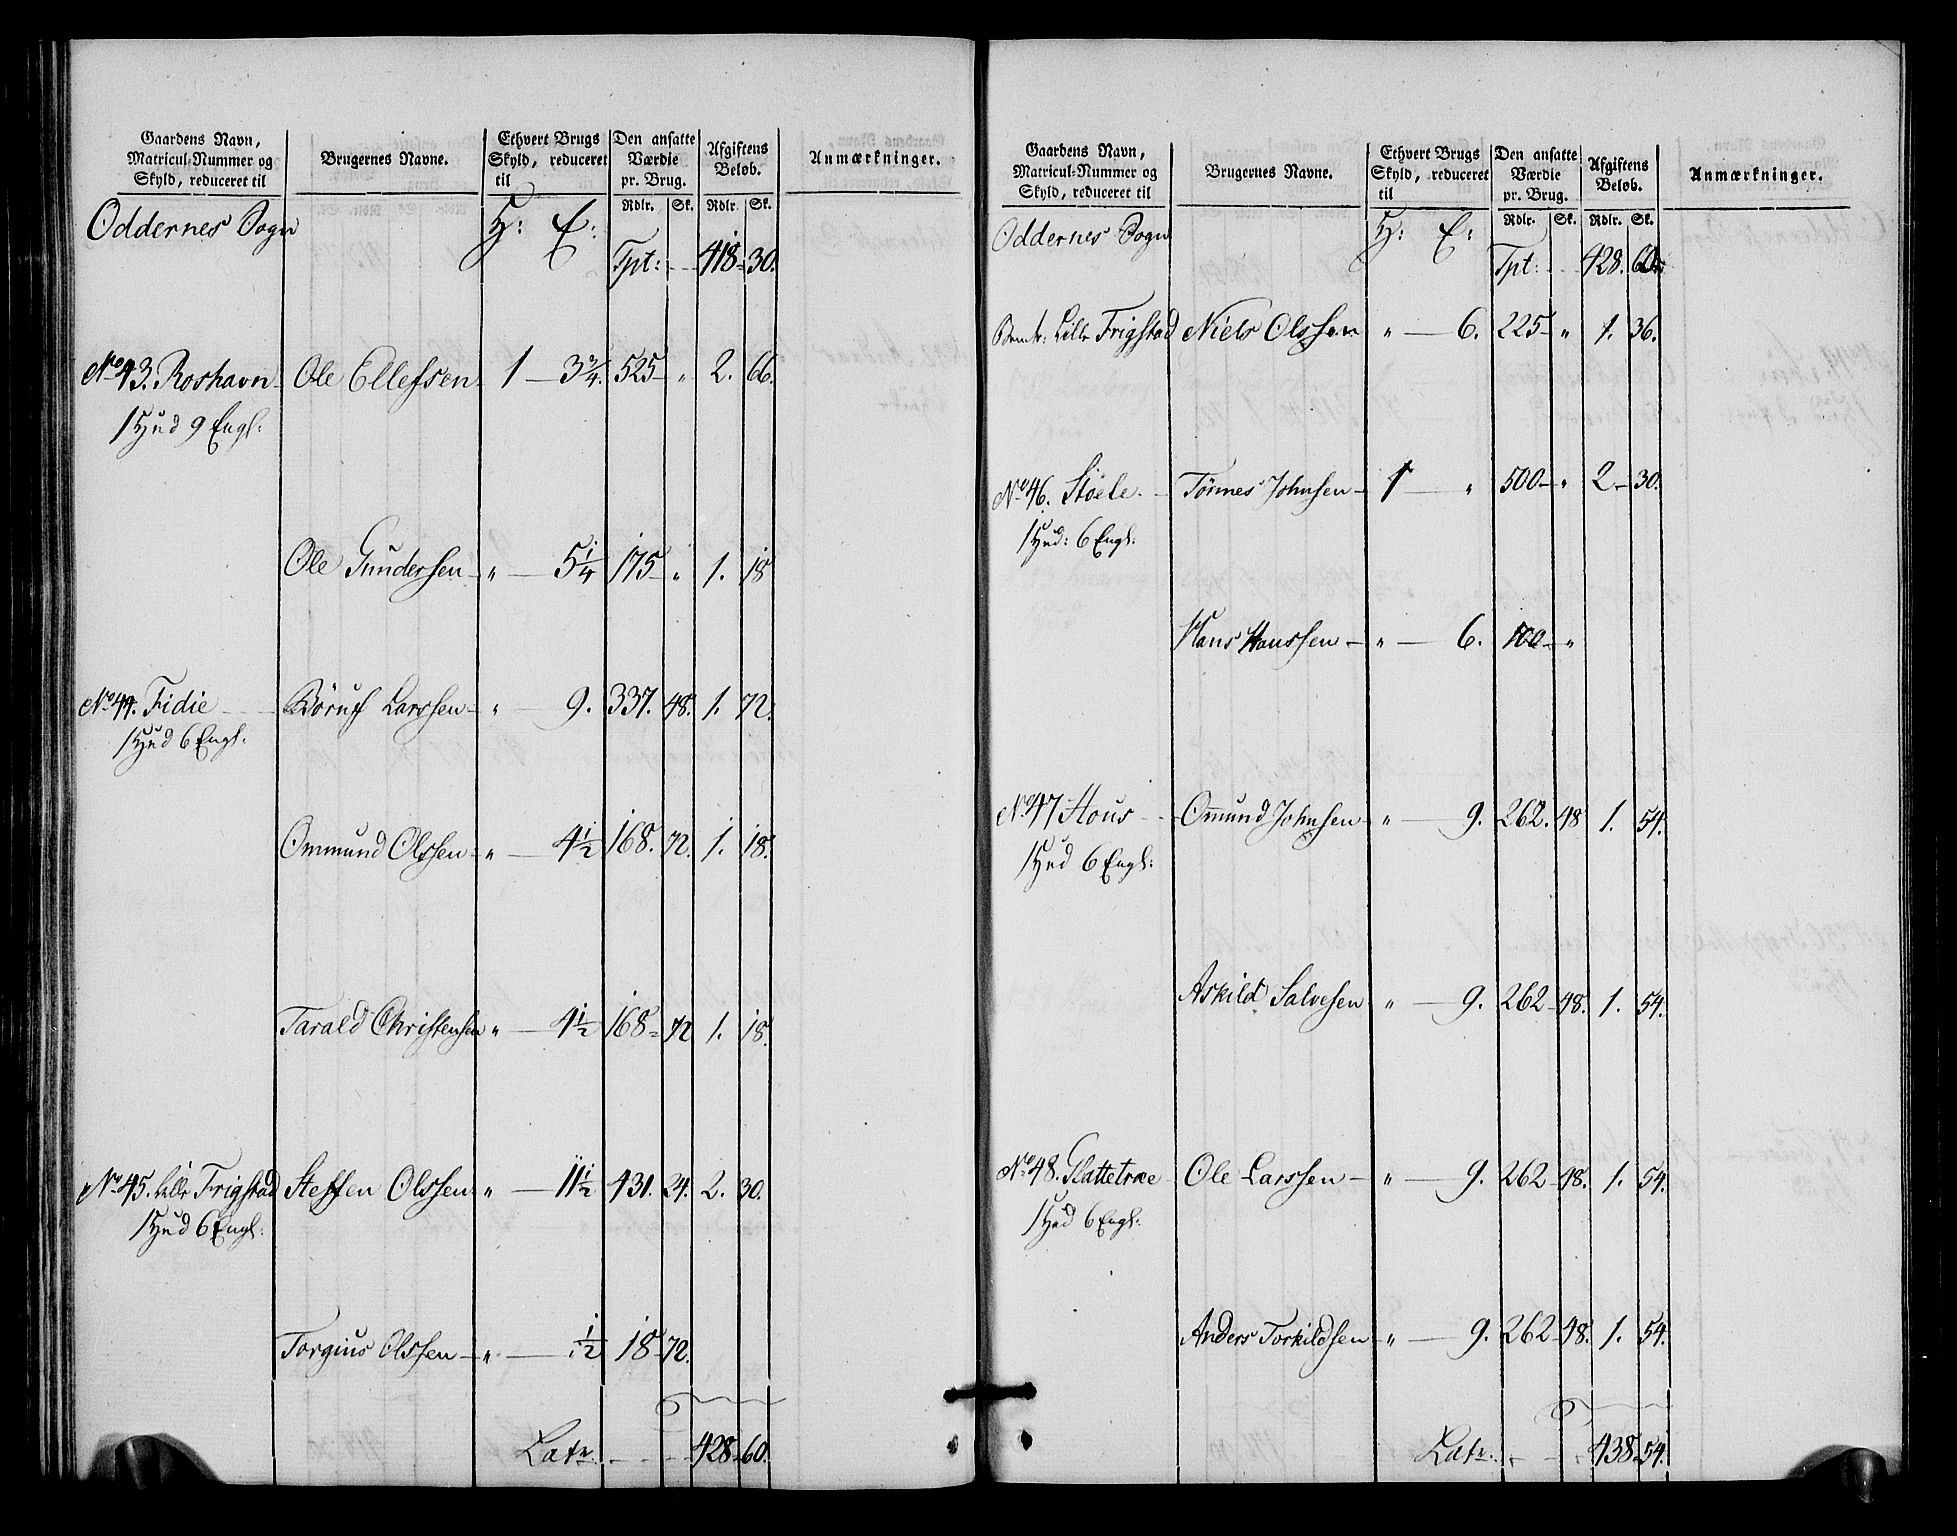 Gaardens Navn, Matricul-Nummer og Skyld, reduceret til | Brugernes Navne. | Ethvert Brugs Skyld, reduceret til | Den ansatte Værdie pr. Brug. | Afgiftens Beløb. | Anmærkninger.
Rdlr. | Sk. | Rdlr. | Sk.
Oddernes Sogn H: E:
Tpt: 418 30.
No 43. Roshavn Ole Ellefsen 1 — 3¾. 525 „ 2. 66.
1 Hud 9 Engl:
Ole Gundersen „ — 5¼ 175 „ 1. 18
No 44. Fidie Börulf Larssen „ — 9. 337. 48. 1. 72.
1 Hud 6 Engl:
Ommund Olssen „ — 4½ 168. 72. 1. 18.
Tarald Christensen „ — 4½ 168 72 1. 18.
No 45. Lille Frigstad Steffen Olssen „ — 11½ 431. 24. 2. 30.
1 Hud 6 Engl:
Torgius Olssen „ — ½ 18 72.
Latr: 428 60.
Gaardens Navn, Matricul-Nummer og Skyld, reduceret til | Brugernes Navne. | Ethvert Brugs Skyld, reduceret til | Den ansatte Værdie pr. Brug. | Afgiftens Beløb. | Anmærkninger.
Rdlr. | Sk. | Rdlr. | Sk.
Oddernes Sogn H: E:
Tpt: 428. 60.
Lille Frigstad Niels Olssen „ — 6. 225 „ 1. 36.
No 46. Støele Tönnes Johnsen 1 — „ 500 „ 2 30.
1 Hud: 6 Engl:
Hans Hanssen „ — 6. 100 „
No 47 Hous Omund Johnsen „ — 9. 262. 48 1. 54.
1 Hud 6 Engl:
Askild Salvesen „ — 9. 262 48. 1. 54.
No 48. Glattetræe Ole Larssen „ — 9. 262 48. 1. 54.
1 Hud 6 Engl:
Anders Torkildsen „ — 9. 262 48. 1. 54.
Latr: 438 54.